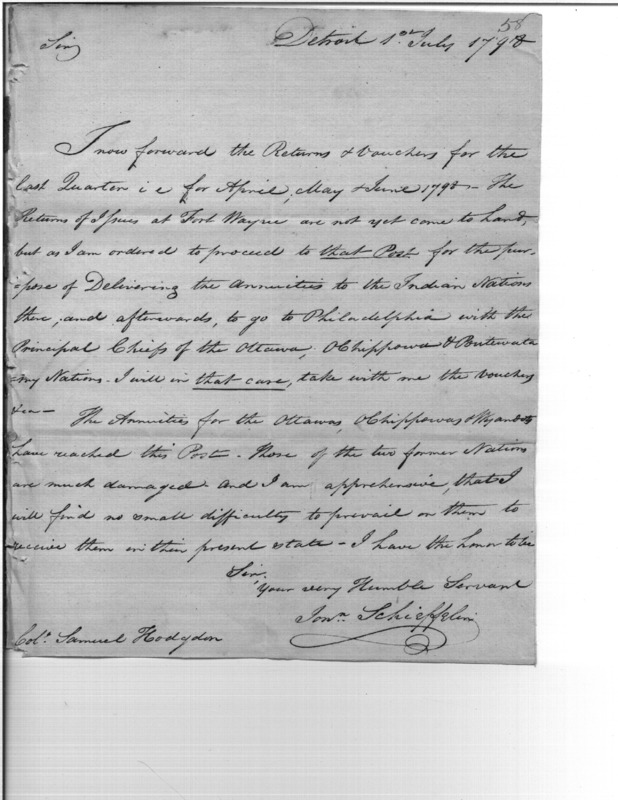 58
Sir, Detroit 1st July 1798
I now forward the Returns & Vouchers for the
last Quarter i e for April, May & June 1798 - The
Returns of Issues at Fort Wayne are not yet come to hand,
but as I am ordered to proceed to that Post for the pur-
-pose of Delivering the Annuities to the Indian Nations
there, and afterwards, to go to Philadelphia with the
Principal Chiefs of the Ottawa, OChippowa & Poutewata
-my Nations. I will in that case, take with me the Vouchers
&ca -
The Annuities for the Ottawas, OChippowas & Wyandots
have reached this Post - Those of the two former Nations
are much damaged - And I am apprehensive, that I
will find no small difficulty to prevail on them to
receive them in their present state - I have the honor to be
Sir,
Your very Humble Servant
Jonn. Schieffelin
Colo. Samuel Hodgdon